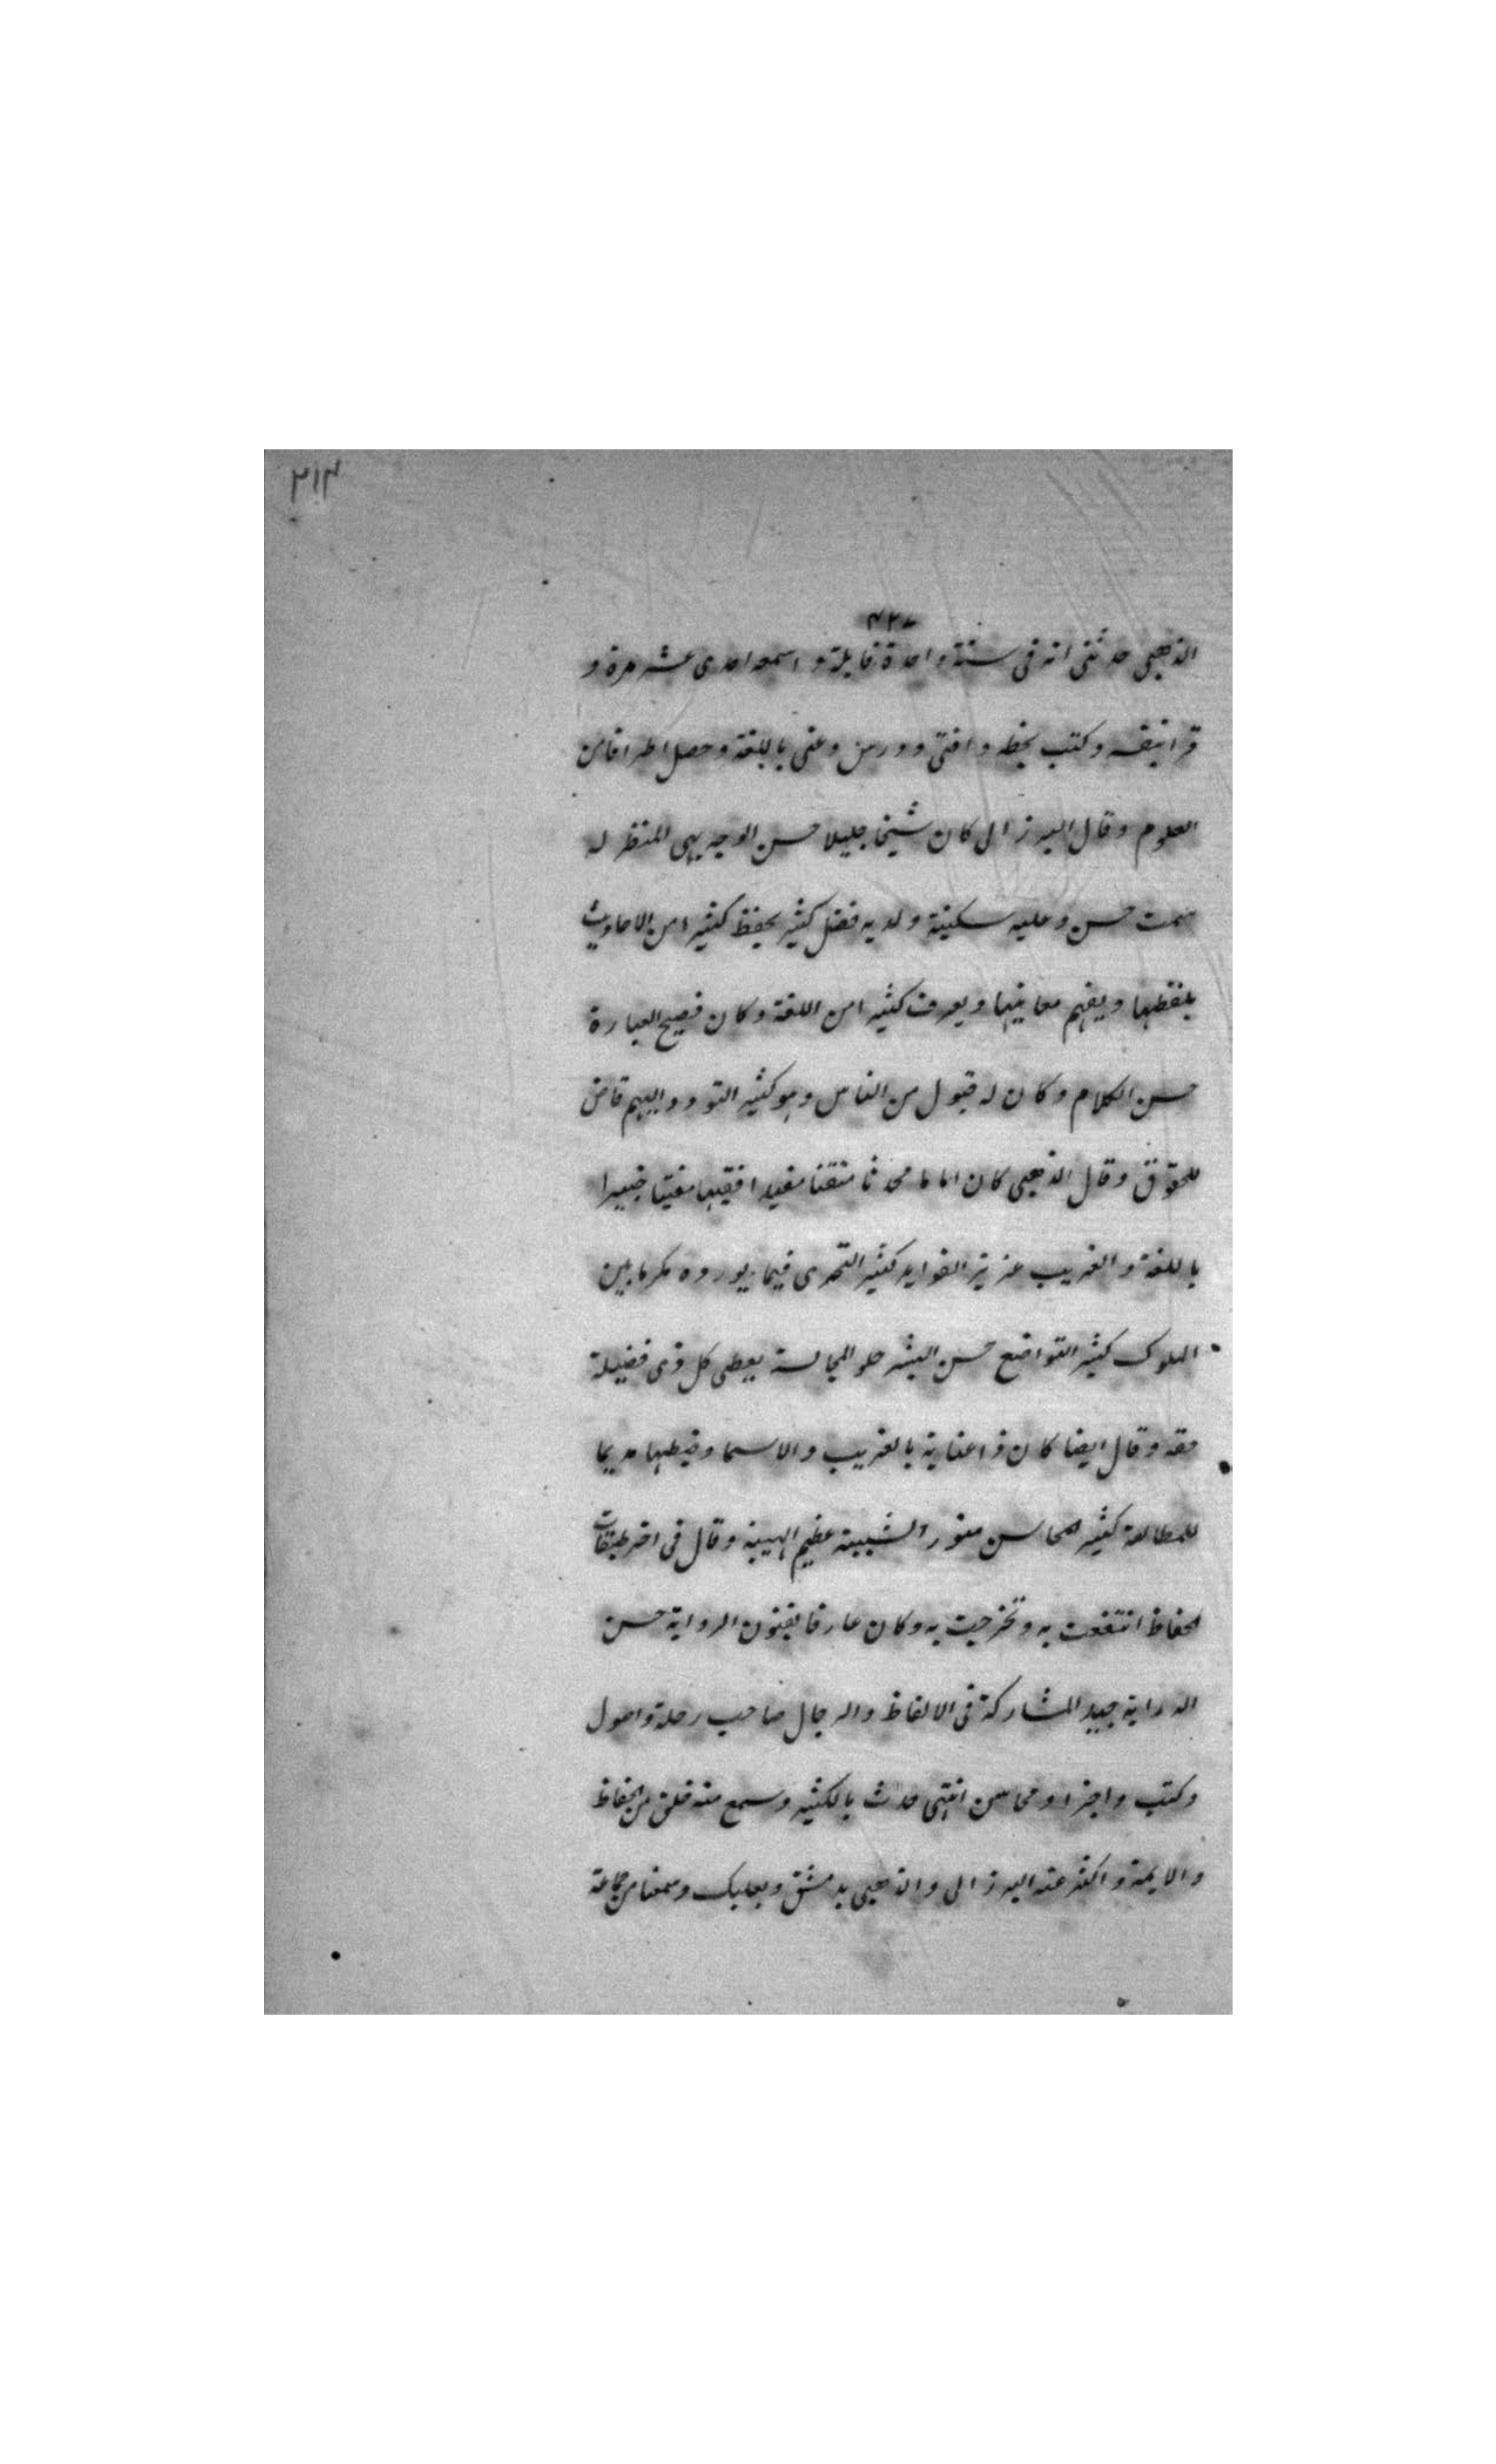 ۲۱۳
۴۲۷
الذهبى حدثنى انه فى سنة واحدة قابله و اسمعه احدى عشر مرة و
قرا بنفسه وكتب بخطه وافتى ودرس وعنى باللغة وحصل اطرافا من
العلوم وقال البرزالى كان شيخا جليلا حسن الوجه بهى المنظر له
سمت حسن وعليه سكينة ولديه فضل كثير يحفظ كثيرا من الاحاديث
بلفظها ويفهم معانيها ويعرف كثيرا من اللغة وكان فصيح العبارة
حسن الكلام وكان له قبول من الناس وهو كثير التودد اليهم قاض
للحقوق وقال الذهبى كان اماما محدثا متقنا مفيدا فقيها مفتيا خبيرا
باللغة والغريب عزيز الفوايد كثير التحرى فيما يورده مكرما بين
الملوك كثير التواضع حسن البشر حلو المجالسة يعطى كل ذى فضيلة
حقه وقال ايضا كان ذا عناية بالغريب والاسما وضبطها مديما
للمطالعة كثير المحاسن منور الشيبة عظيم الهيبة وقال فى اخر طبقات
الحفاظ انتفعت به وتخرجت به وكان عارفا بفنون الرواية حسن
الدراية جيد المشاركة فى الالفاظ والرجال صاحب رحلة واصول
وكتب واجزا ومحاسن انتهى حدث بالكثير وسمع منه خلق من الحفاظ
والايمة واكثر عنه البرزالى والذهبى بدمشق وبعلبك وسمعنا من جماعة